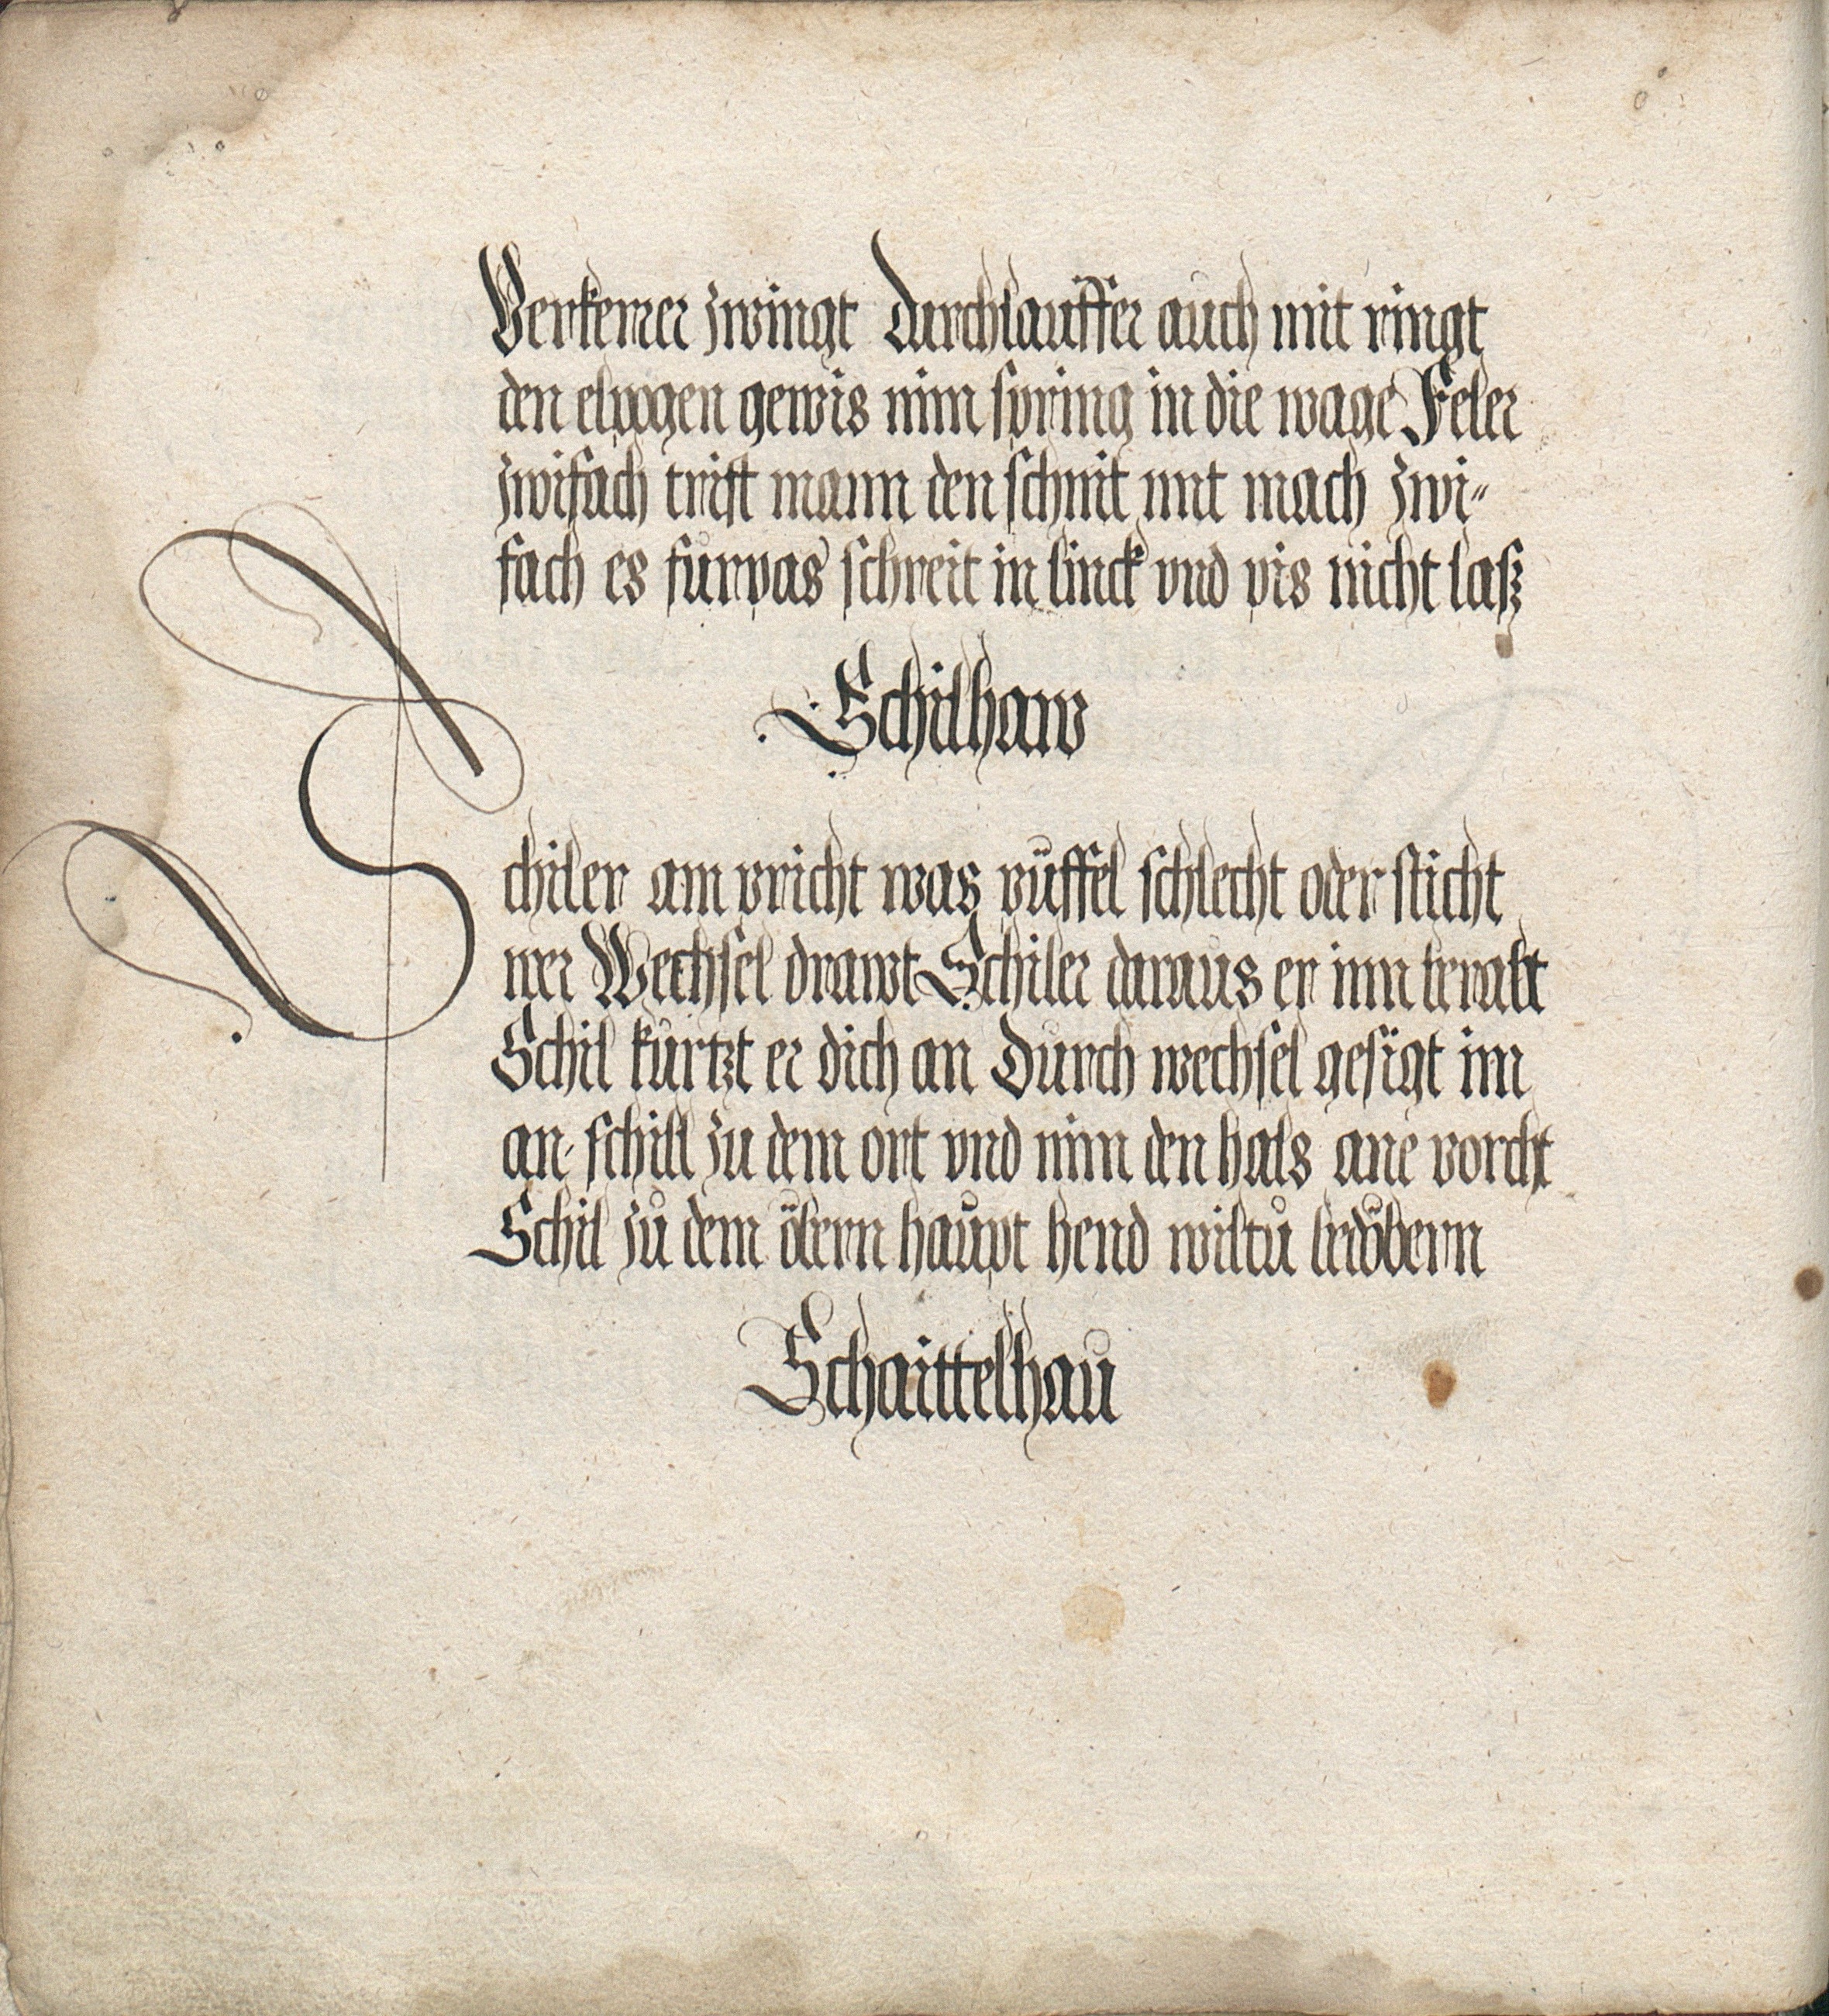 Verkerer zwingt Durchlauffer auch mit ringt
den elpogen gewis nim spring in die wage Feler
zwifach trift mann den schnit mit mach zwi⸗
fach es fürpas schreit in linck vnd pis nicht laß
Schilhaw
Schiler am pricht was püffel schlecht oder sticht
wer Wechsel drawt Schiler daraus er inn beraubt
Schil kürtzt er dich an Durch wechsel gesigt im
an schill zu dem ort vnd nim den hals ane vorcht
Schil zů dem öbern haupt hend wiltu bedöbern
Schaittelhau